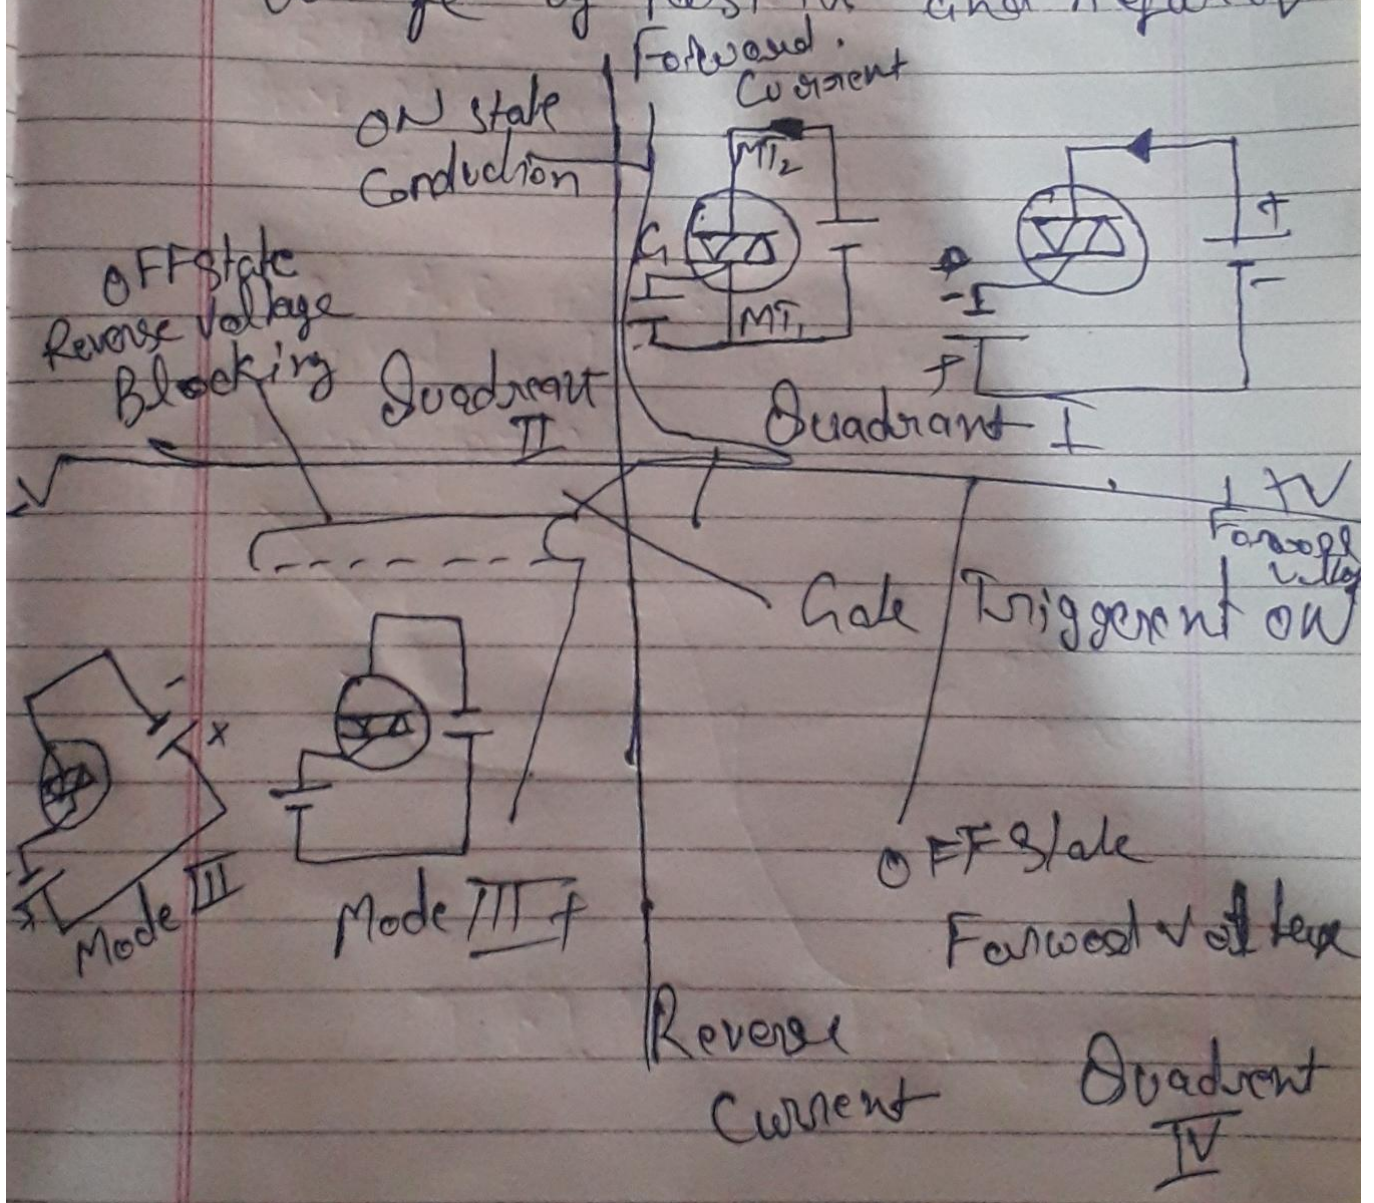 and
Forward
Current
ON State
Conduction
MT2
G
MT1
+
-
-I
+
OFF State
Reverse Voltage
Blocking
Quadrant
II
Quadrant I
-V
+V
Forward
Gate Triggerent ON
-
+
Mode III
Mode III+
OFF State
Reverse
Current
Quadrent
IV